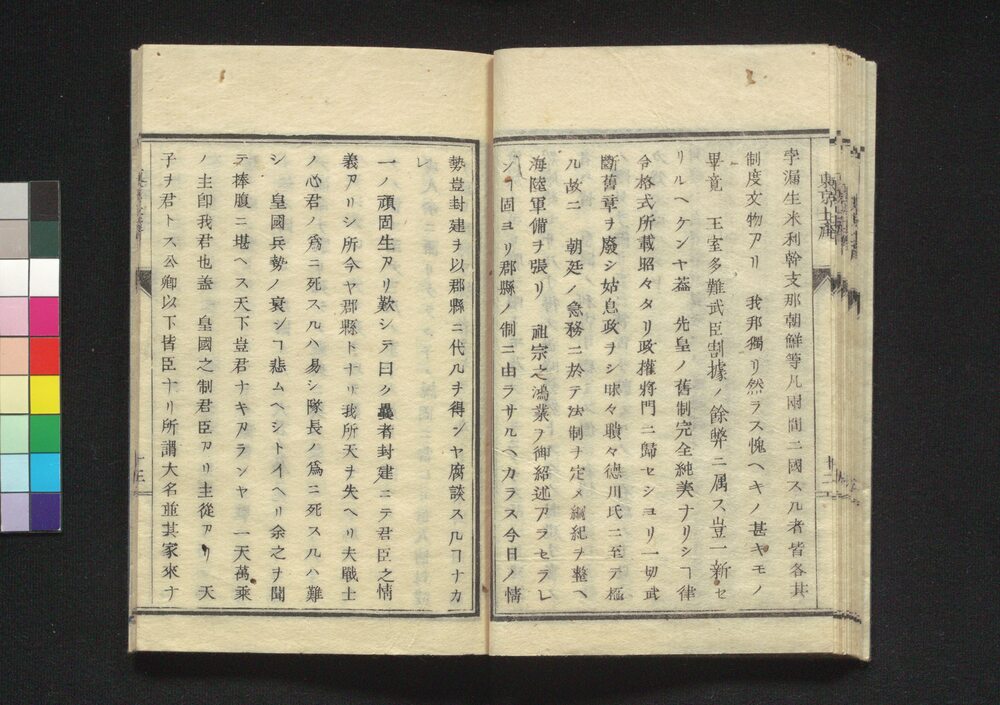 字漏生米利幹支那朝鮮等凡兩間ニ國スル者皆各其
制度文物アリ 我邦獨リ然ラス愧ヘキノ甚キモノ
畢竟 王室多難武臣割據ノ餘弊ニ属ス豈一新セ
リルヘケンヤ蓋 先皇ノ舊制完全純美ナリシヿ律
令格式所載昭々タリ政摧將門ニ歸セシヨリ一切武
斷舊章ヲ廢シ姑息政ヲシ聩々德川氏ニ至テ極
ル故ニ 朝廷ノ急務ニ於テ法制ヲ定メ綱紀ヲ整ヘ
海陸軍備ヲ張リ 祖宗之鴻業ヲ御紹述アラセラレ
ンヿ固ヨリ郡縣ノ制ニ由ラサルヘカラス今日ノ情
勢豈封建ヲ以郡縣ニ代ルヲ得ンヤ腐談スルヿナカ
レ
一ノ頑固生アリ歎シテ曰ク曩者封建ニテ君臣之情
義アリシ所今ヤ郡縣トナリ我所天ヲ失ヘリ夫戰士
ノ心君ノ爲ニ死スルハ易シ隊長ノ爲ニ死スルハ難
シ 皇國兵勢ノ衰ンヿ悲ムヘシトイヘリ余之ヲ聞
テ捧腹ニ堪ヘス天下豈君ナキアランヤ 一天萬乘
ノ主即我君也盖 皇國之制君臣アリ主從アリ 天
子ヲ君トス公卿以下皆臣ナリ所謂大名並其家來ナ
東京土產
廿二